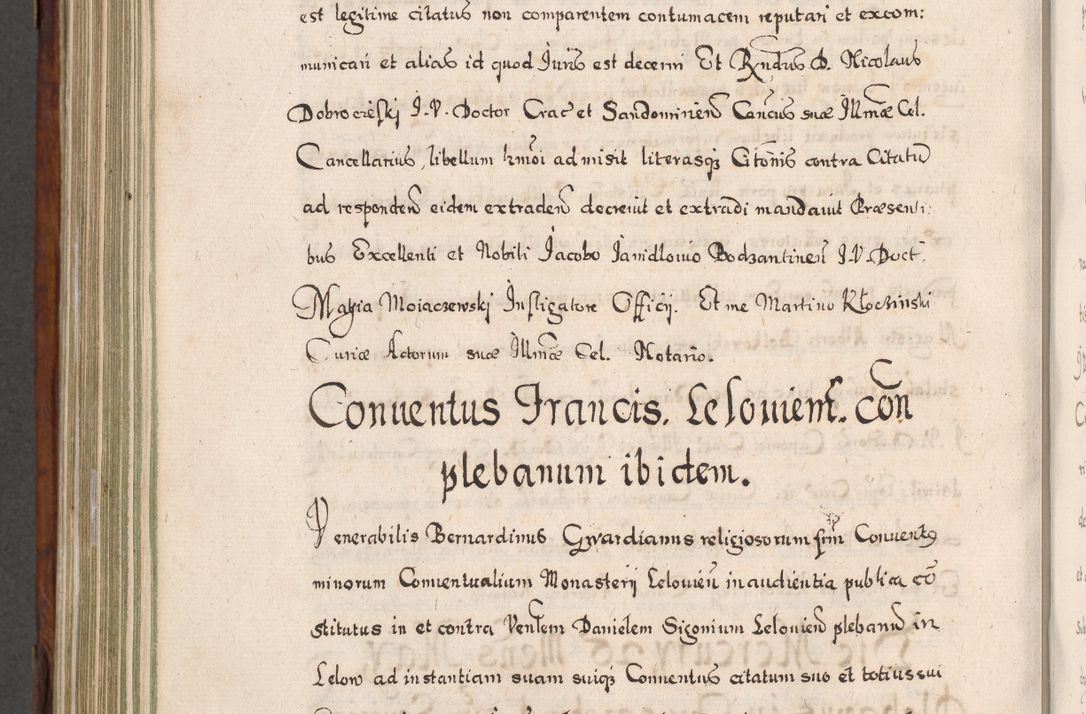 est legitime citatus non comparentem contumacem reputari et excom:
municari et alias id quod Juris est decerni Et Rndus D. Nicolaus
Dobrocieski J. V. Doctor Crac et Sandomirien Cancus suæ Illmæ Cel.
Cancellarius, libellum hmoi admisit literasq Citonis contra Citatu
ad responden eidem extraden decrevit et extradi mandavit Præsenti:
bus Excellenti et Nobili Jacobo Janidlovio Bodzantinen J. V. Doct:
Mathia Moiaczewski Instigatore Officij. Et me Martino Kłoczinski
Curiæ Actorum suæ Illmæ Cel. Notario.
Conventus Francis. Leloviens. con
plebanum ibidem.
Venerabilis Bernardinus Gwardianus religiosorum frm Convents
minorum Conventualium Monasterij Lelovien in audientia publica co
stitutus in et contra Venlem Danielem Sigonium Lelovien plebanu in
Lelow ad instantiam suam suiq Conventus citatum suo et totius sui